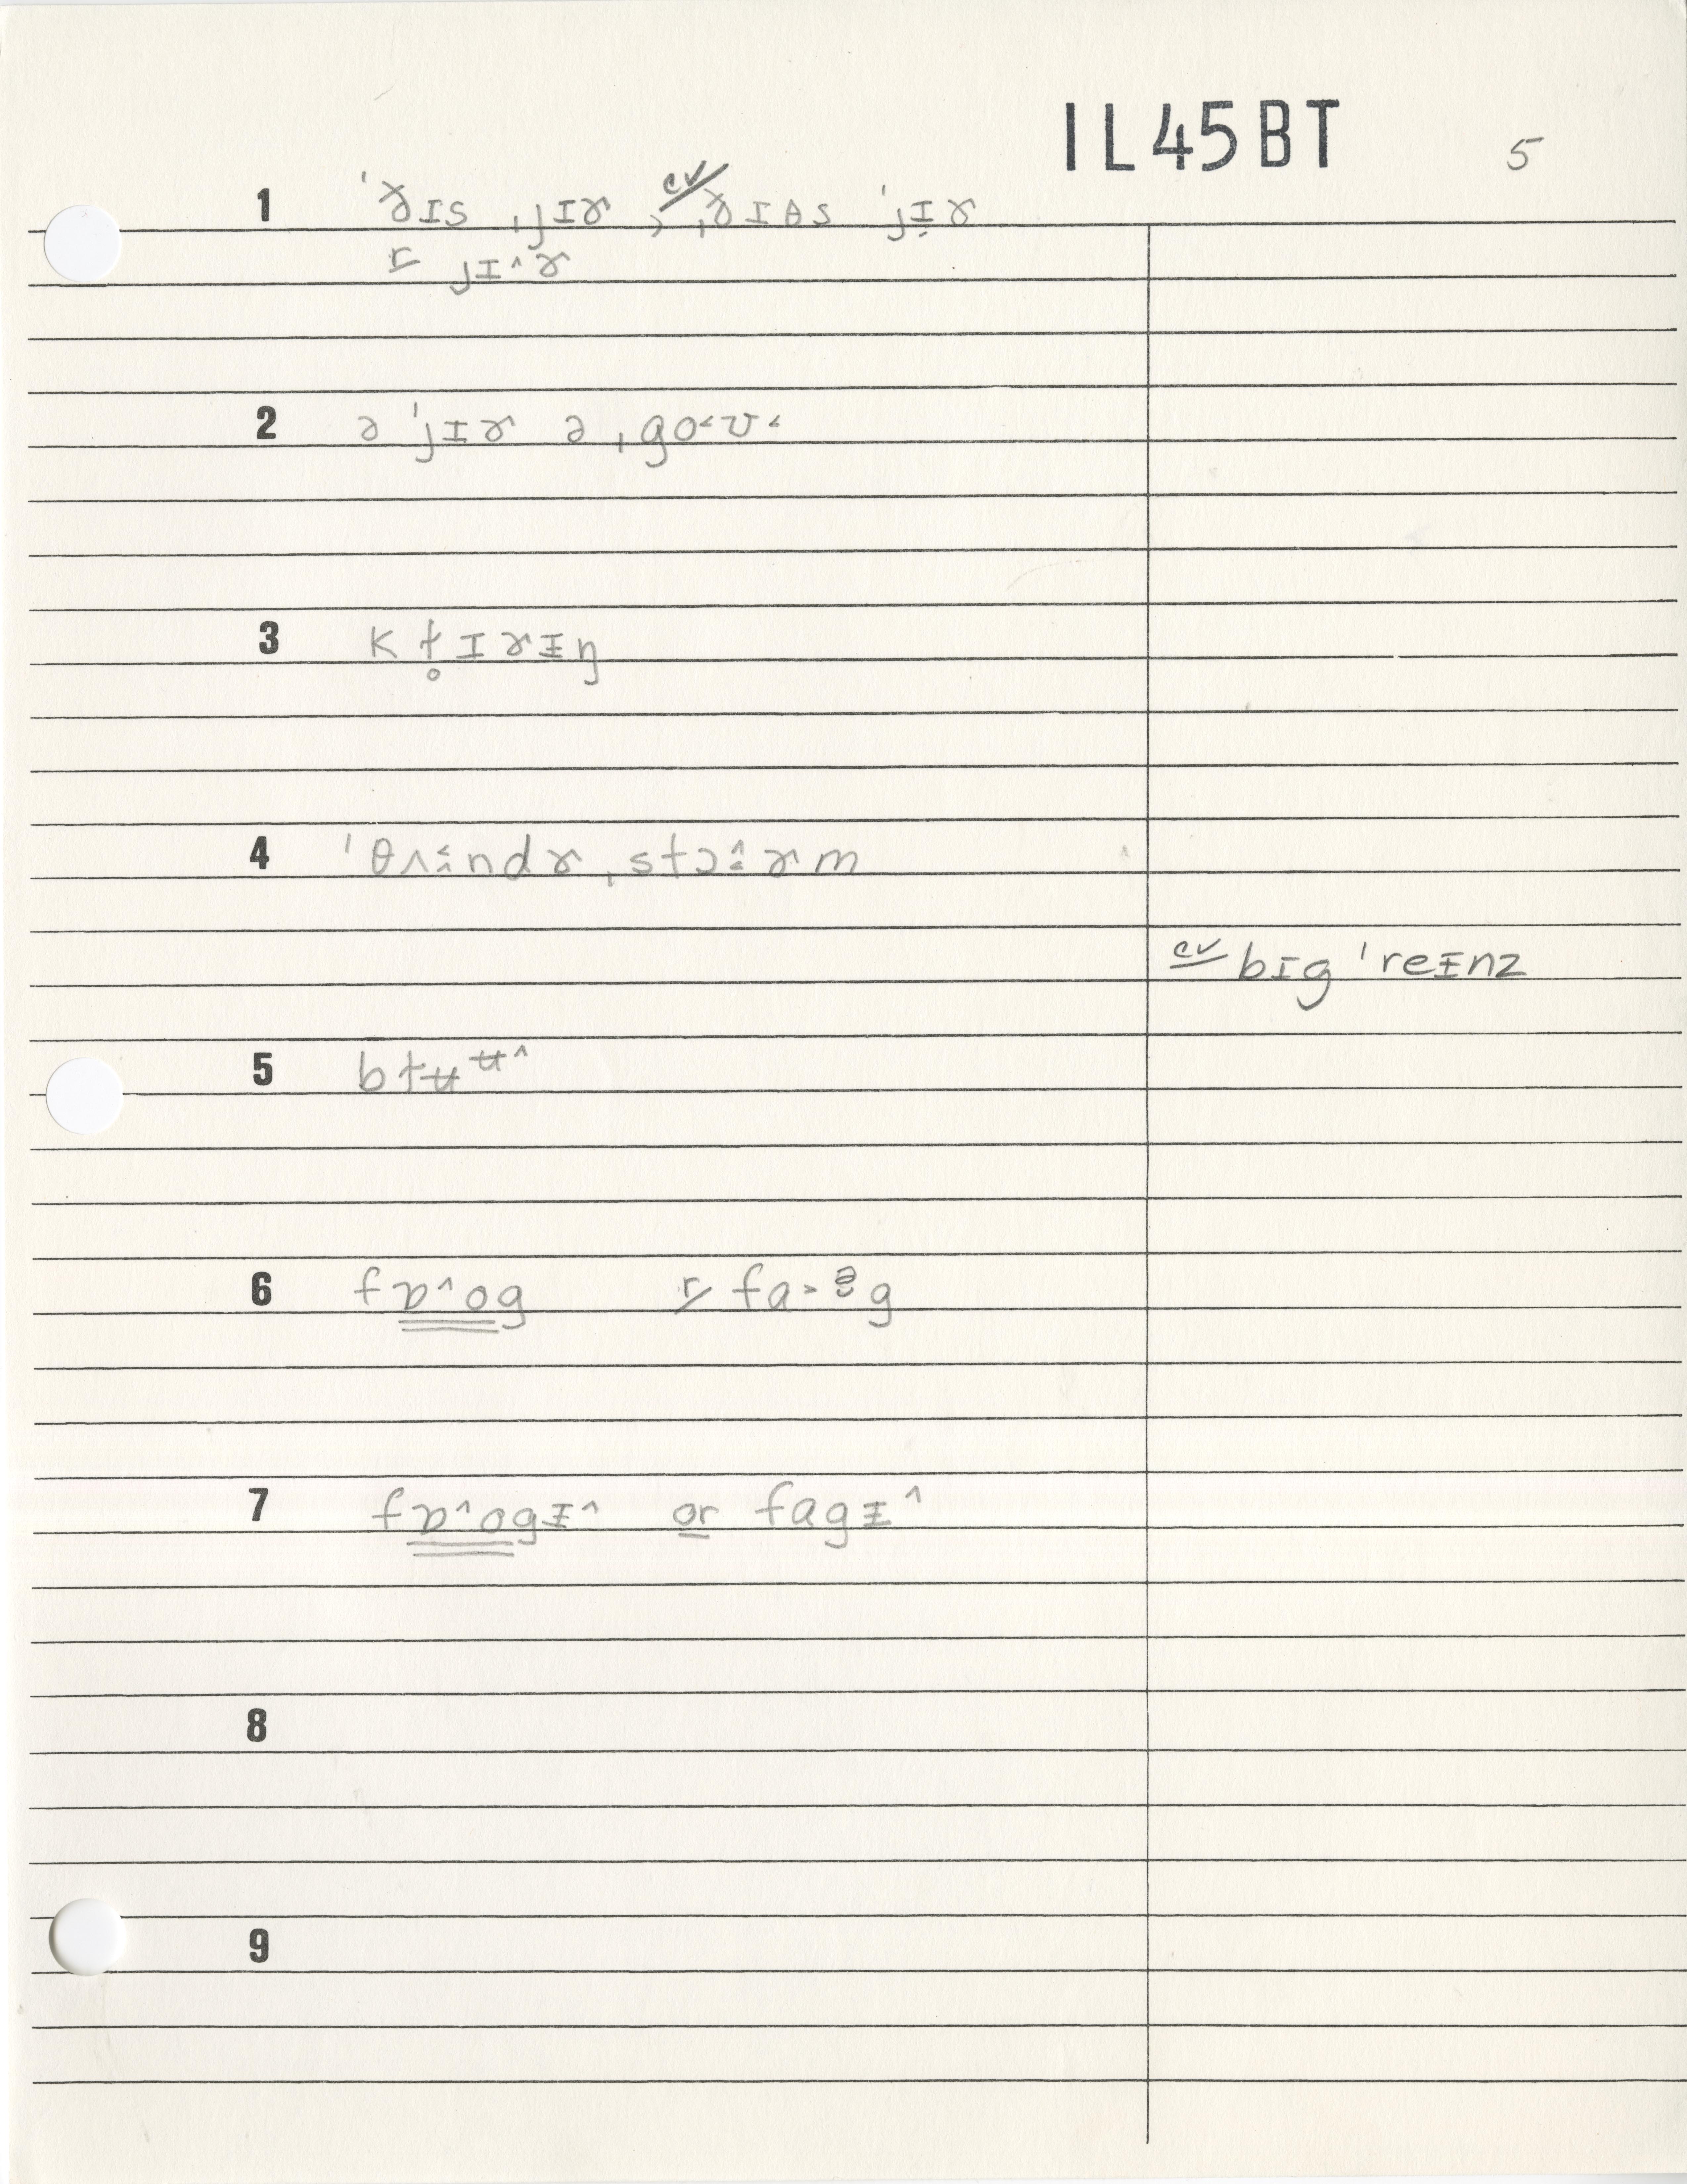 1L45BT 5
1 ˈðɪs ˌjɪɚ , cv ˌðɪəs ˈjɪ̣ɚ
r jɪ˄ɚ
2 ə ˈjɪɚ ə ˌgo˂ʊ˂
3 kɫ̥ɪɚᵻŋ
4 ˈθʌ˂ːndɚ ˌstɔ˄ːɚm
cv bɪg ˈreᵻnz
5 bɫʉʉ˄
6 fɒ˄og r fɑ˃ə̆g
7 fɒ˄ogᵻ˄ or fɑgᵻ˄
8
9